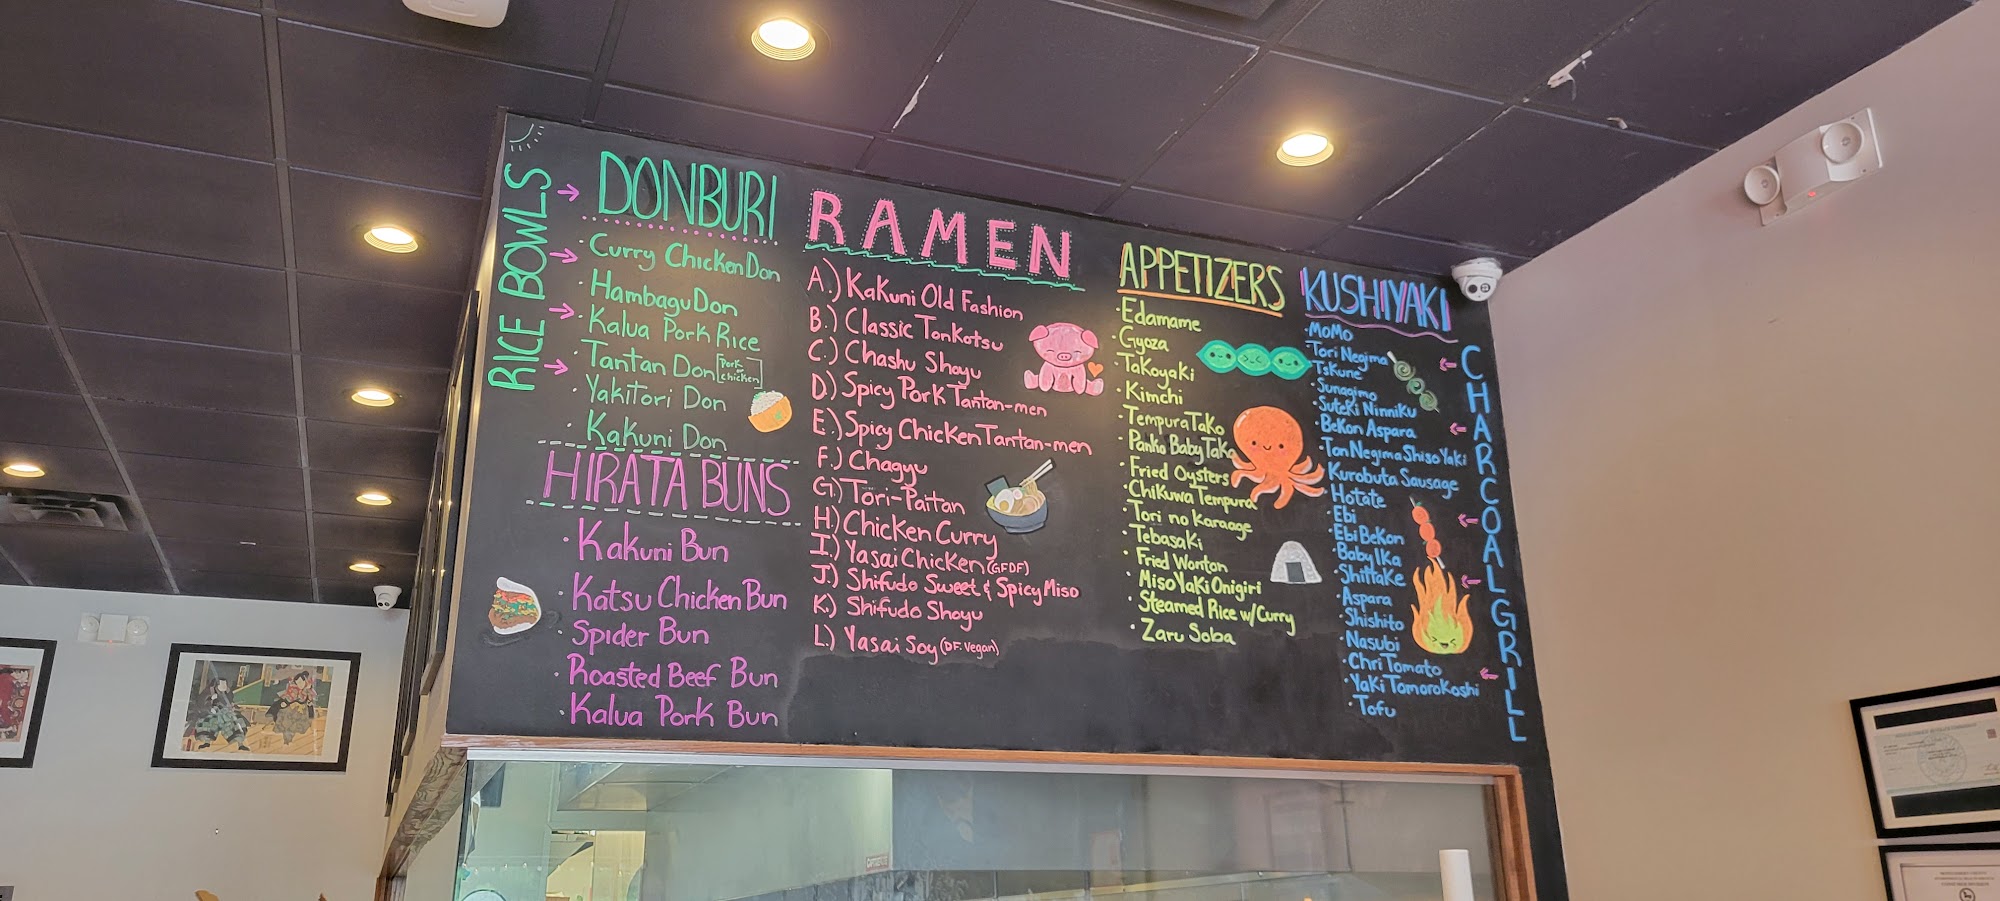 RICE BOWLS
DONBURI
· Curry Chicken Don
· Hambagu Don
· Kalua Pork Rice
· Tantan Don [Pork or chicken]
· Yakitori Don
· Kakuni Don
HIRATA BUNS
· Kakuni Bun
· Katsu Chicken Bun
· Spider Bun
· Roasted Beef Bun
· Kalua Pork Bun
RAMEN
A.) Kakuni Old Fashion
B.) Classic Tonkotsu
C.) Chashu Shoyu
D.) Spicy Pork Tantan-men
E.) Spicy Chicken Tantan-men
F.) Chagyu
G.) Tori-Paitan
H.) Chicken Curry
I.) Yasai Chicken (GFDF)
J.) Shifudo Sweet & Spicy Miso
K.) Shifudo Shoyu
L.) Yasai Soy (DF. Vegan)
APPETIZERS
· Edamame
· Gyoza
· Takoyaki
· Kimchi
· Tempura Tako
· Panko Baby Tako
· Fried Oysters
· Chikuwa Tempura
· Tori no Karaage
· Tebasaki
· Fried Wonton
· Miso Yaki Onigiri
· Steamed Rice w/Curry
· Zaru Soba
KUSHIYAKI
· MoMo
· Tori Negima
· Tskune
· Sunagimo
· Suteki Ninniku
· Bekon Aspara
· Ton Negima Shiso Yaki
· Kurobuta Sausage
· Hotate
· Ebi
· Ebi Bekon
· Baby Ika
· Shiitake
· Aspara
· Shishito
· Nasubi
· Chri Tomato
· Yaki Tomorokoshi
· Tofu
CHARCOAL GRILL